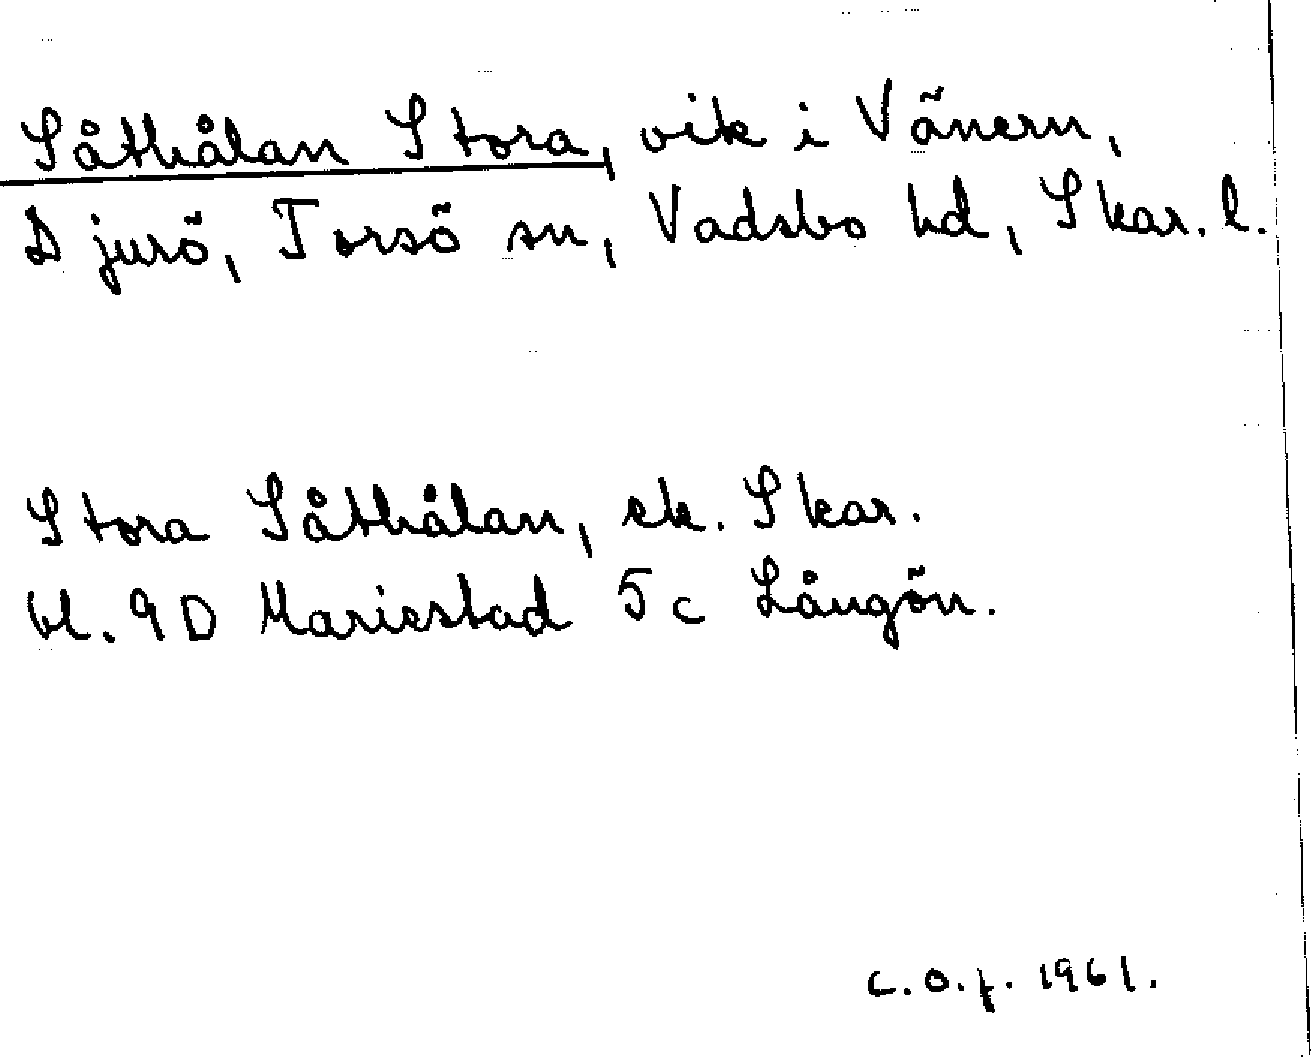 Såthålan Stora, vik i Vänern,
Djurö, Torsö sn, Vadsbo hd, Skar. l.
Stora Såthålan, ek. Skar.
bl. 9D Mariestad 5c Långön.
C.O.f. 1961.